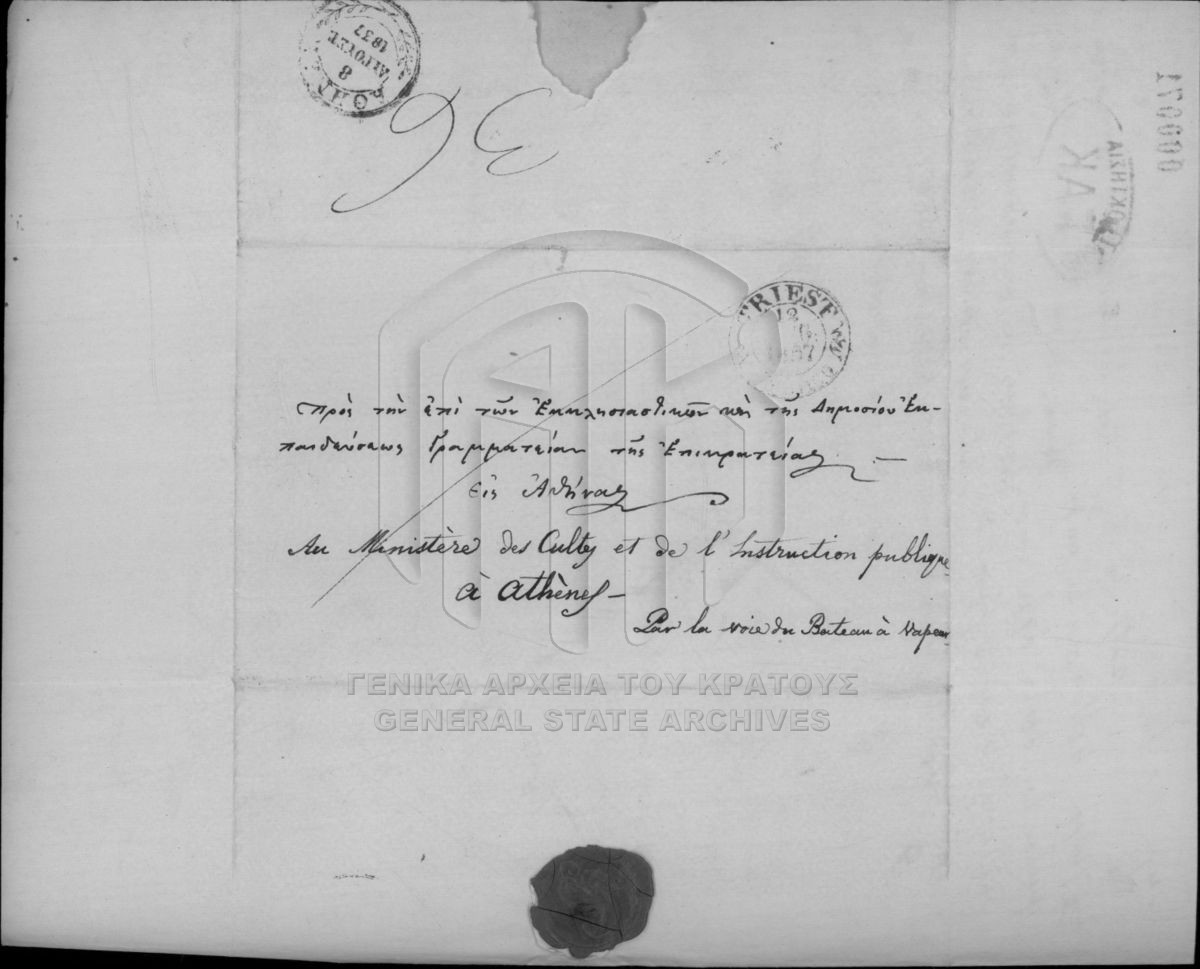 8
ΑΥΓΟΥΣΤ.
1837
36
170000
TRIEST
12
Πρὸς τὴν ἐπὶ τῶν Ἐκκλησιαστικῶν καὶ τῆς Δημοσίου Ἐκ-
παιδεύσεως Γραμματείαν τῆς Ἐπικρατείας —
Εἰς Ἀθήνας
Au Ministère des Cultes et de l'Instruction publique
à Athènes —
Par la voie du Bateau à Vapeur
ΓΕΝΙΚΑ ΑΡΧΕΙΑ ΤΟΥ ΚΡΑΤΟΥΣ
GENERAL STATE ARCHIVES